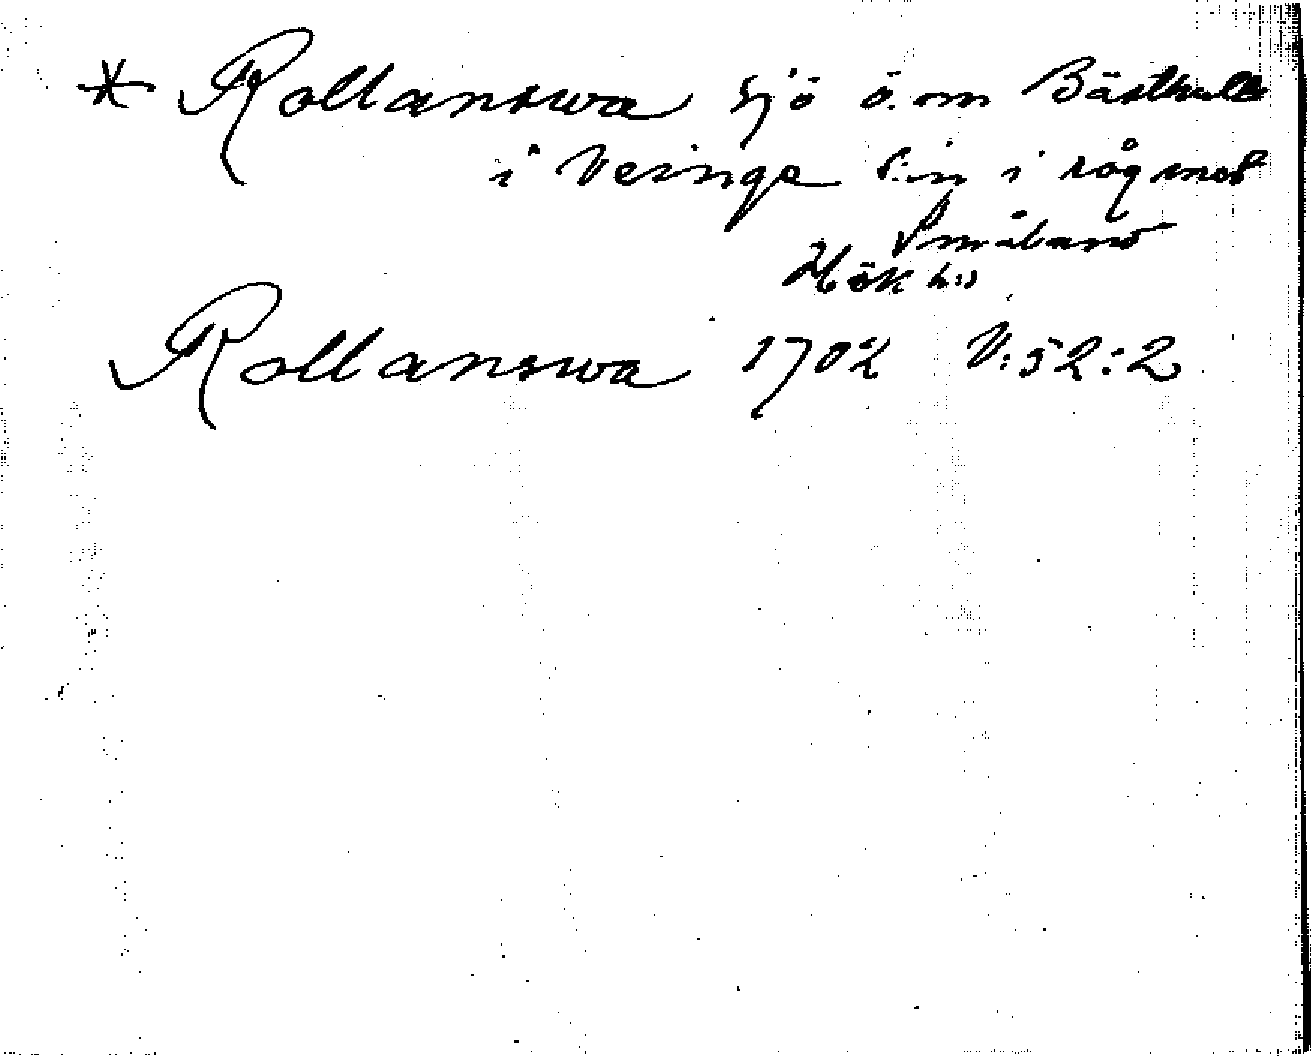 * Rollanswa sjö ö. om Bästhult
i Veinge s:n i råg mot
Småland
Hök hd
Rollanswa 1702 V:52:2